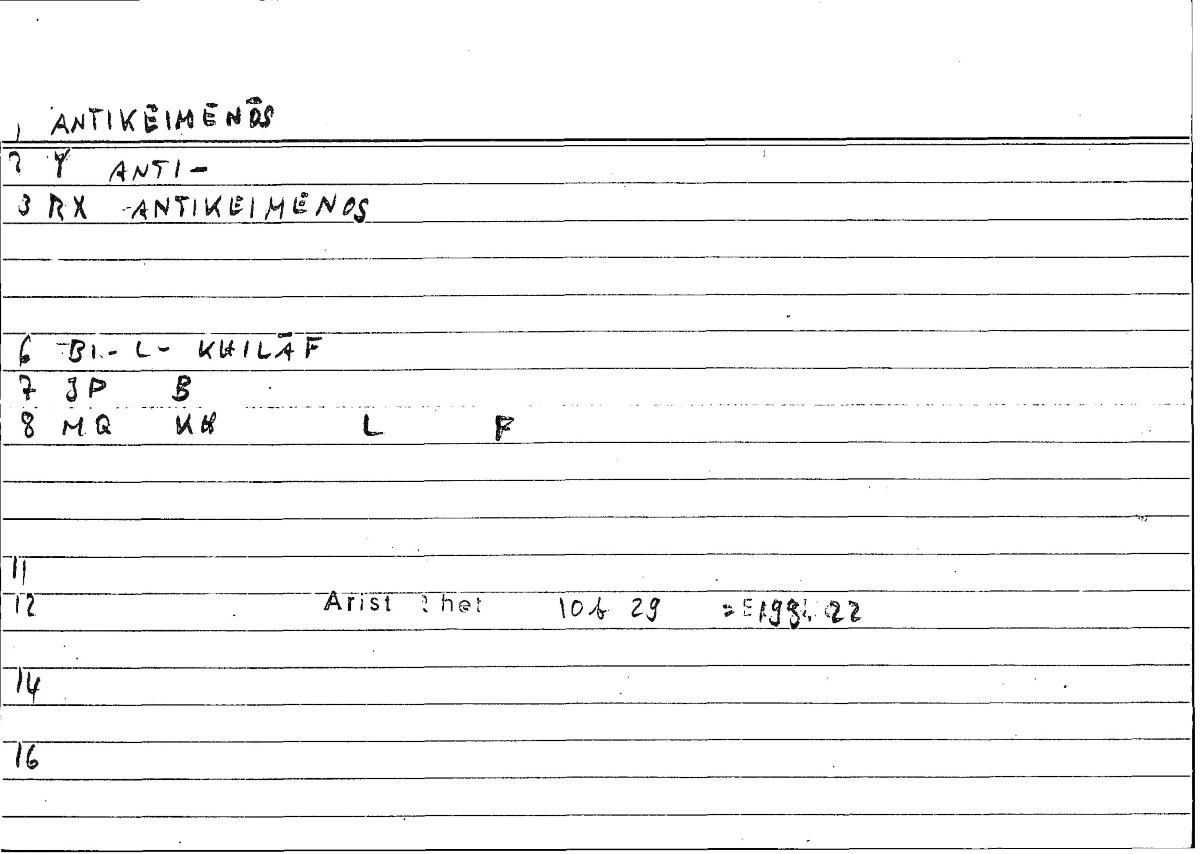 1 ANTIKĒIMĒNŌS
2 Y ANTI-
3 RX -ANTIKĒIMĒNOS
6 -BI-L- KHILĀF
7 JP B
8 MQ KH L F
11
12 Arist Rhet 10b 29
14
16